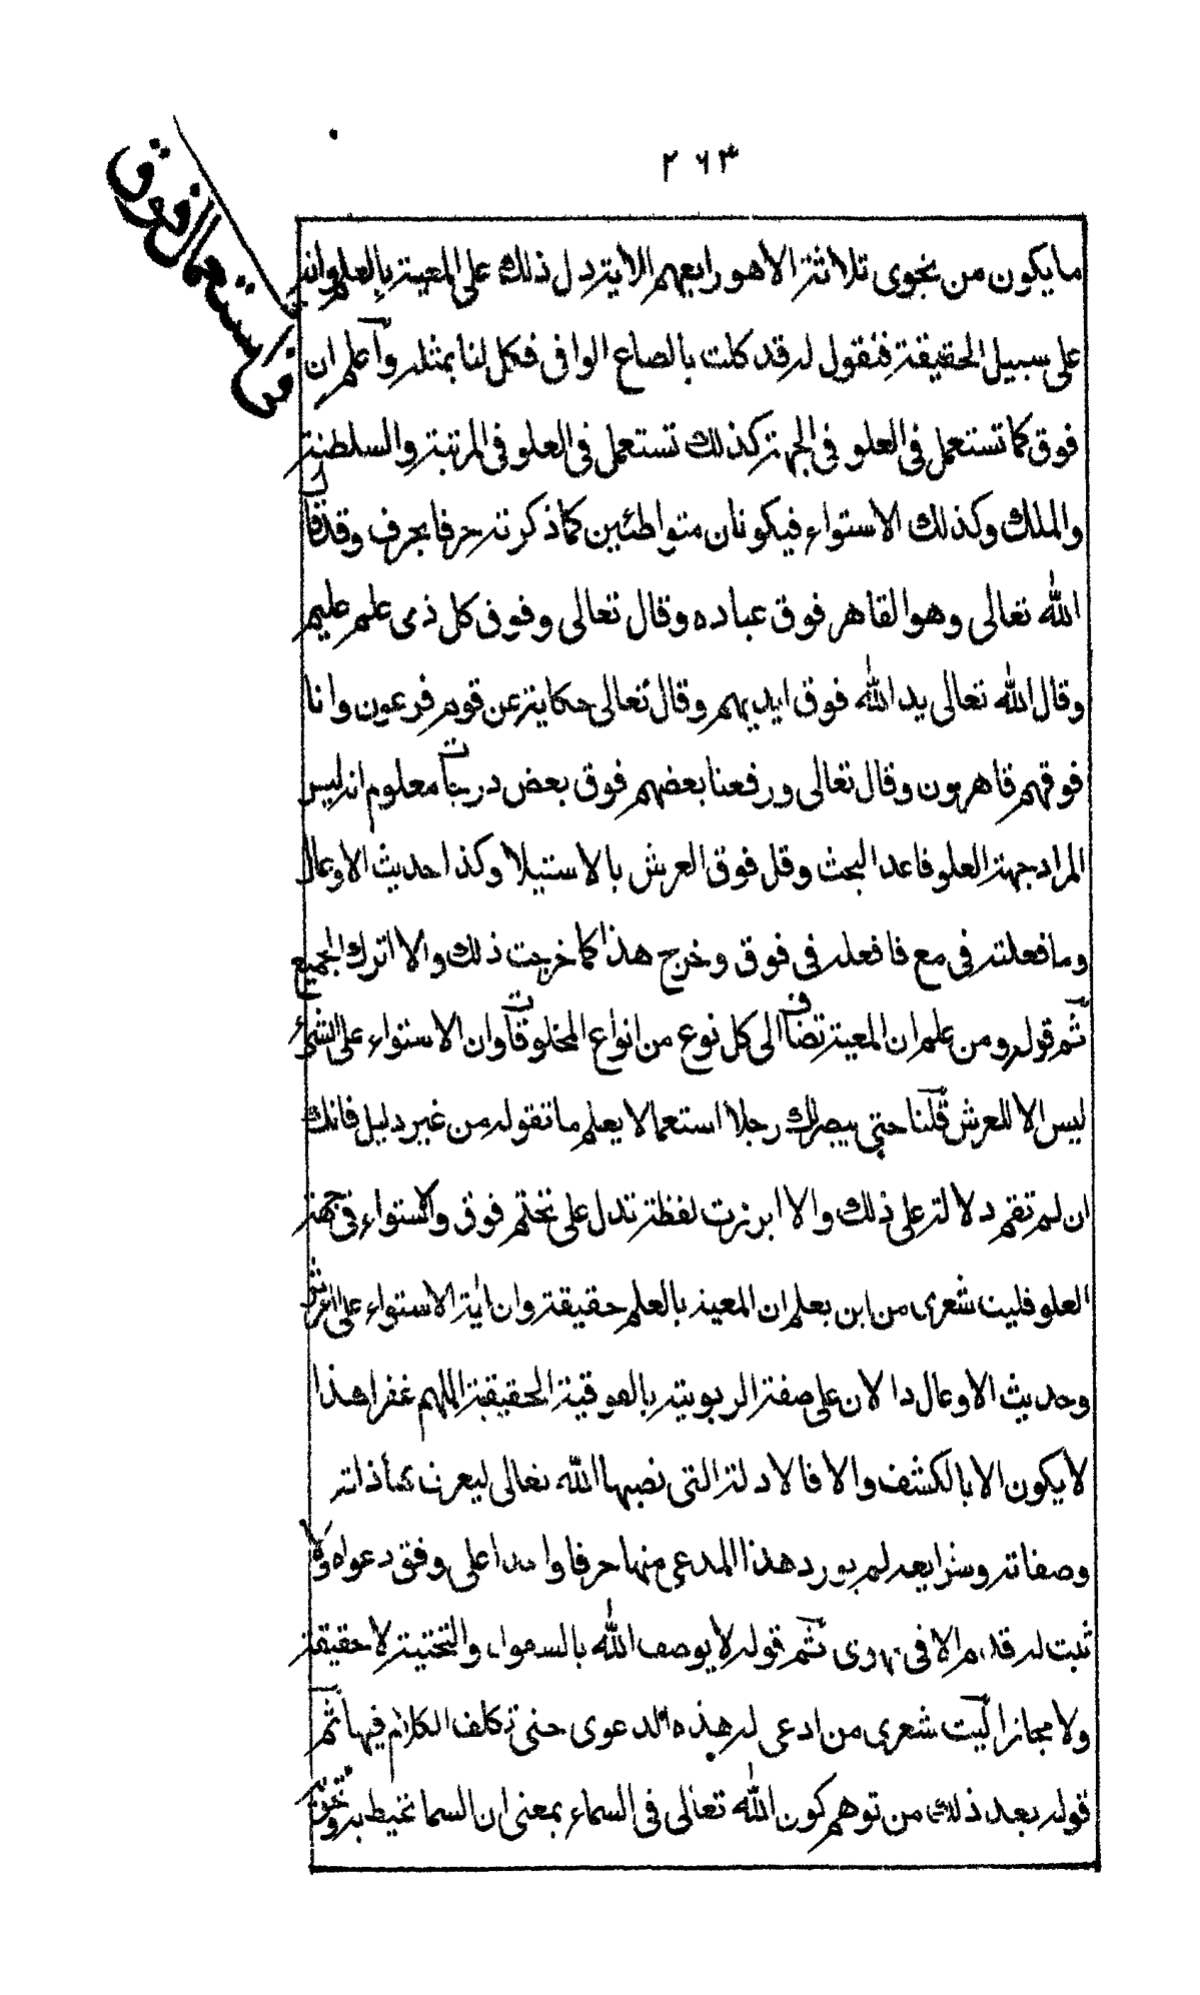 ٢٦٣
في استعمال فوق
ما يكون من نجوى ثلاثة الا هو رابعهم الاية دل ذلك على المعية بالعلم وانه
على سبيل الحقيقة فنقول له قد كلت بالصاع الوافى فكل لنا بمثله واعلم ان
فوق كما تستعمل فى العلو فى الجهة كذلك تستعمل فى العلو فى المرتبة والسلطنة
والملك وكذلك الاستواء فيكونان متواطئين كما ذكرته حرفا بحرف وقد قال
الله تعالى وهو القاهر فوق عباده وقال تعالى وفوق كل ذى علم عليم
وقال الله تعالى يد الله فوق ايديهم وقال تعالى حكاية عن قوم فرعون وانا
فوقهم قاهرون وقال تعالى ورفعنا بعضهم فوق بعض درجات معلوم انه ليس
المراد جهة العلو فاعد البحث وقل فوق العرش بالاستيلا وكذا حديث الاوعال
وما فعلته فى مع فافعله فى فوق وخرج هذا كما خرجت ذلك والا اترك الجميع
ثم قوله ومن علم ان المعية تضاف الى كل نوع من انواع المخلوقات وان الاستواء على الشئ
ليس الا للعرش قلنا حتى يبصرلك رجلا استعمالا يعلم ما تقوله من غير دليل فانك
ان لم تقم دلالة على ذلك والا ابرزت لفظة تدل على تحتم فوق والاستواء فى جهة
العلو فليت شعرى من اين يعلم ان المعية بالعلم حقيقة وان اية الاستواء على العرش
وحديث الاوعال دالان على صفة الربوبية بالفوقية الحقيقية اللهم غفرا هذا
لا يكون الا بالكشف والا فالادلة التى نصبها الله تعالى ليعرف بها ذاته
وصفاته وشرايعه لم يورد هذا المدعى منها حرفا واحدا على وفق دعواه ولا
ثبت له قدم الا فى مهوى ثم قوله لا يوصف الله بالسفول والتحتية لا حقيقة
ولا مجازا ليت شعرى من ادعى له هذه الدعوى حتى تكلف الكلام فيها ثم
قوله بعد ذلك من توهم كون الله تعالى فى السماء بمعنى ان السما تحيط به وتحويه